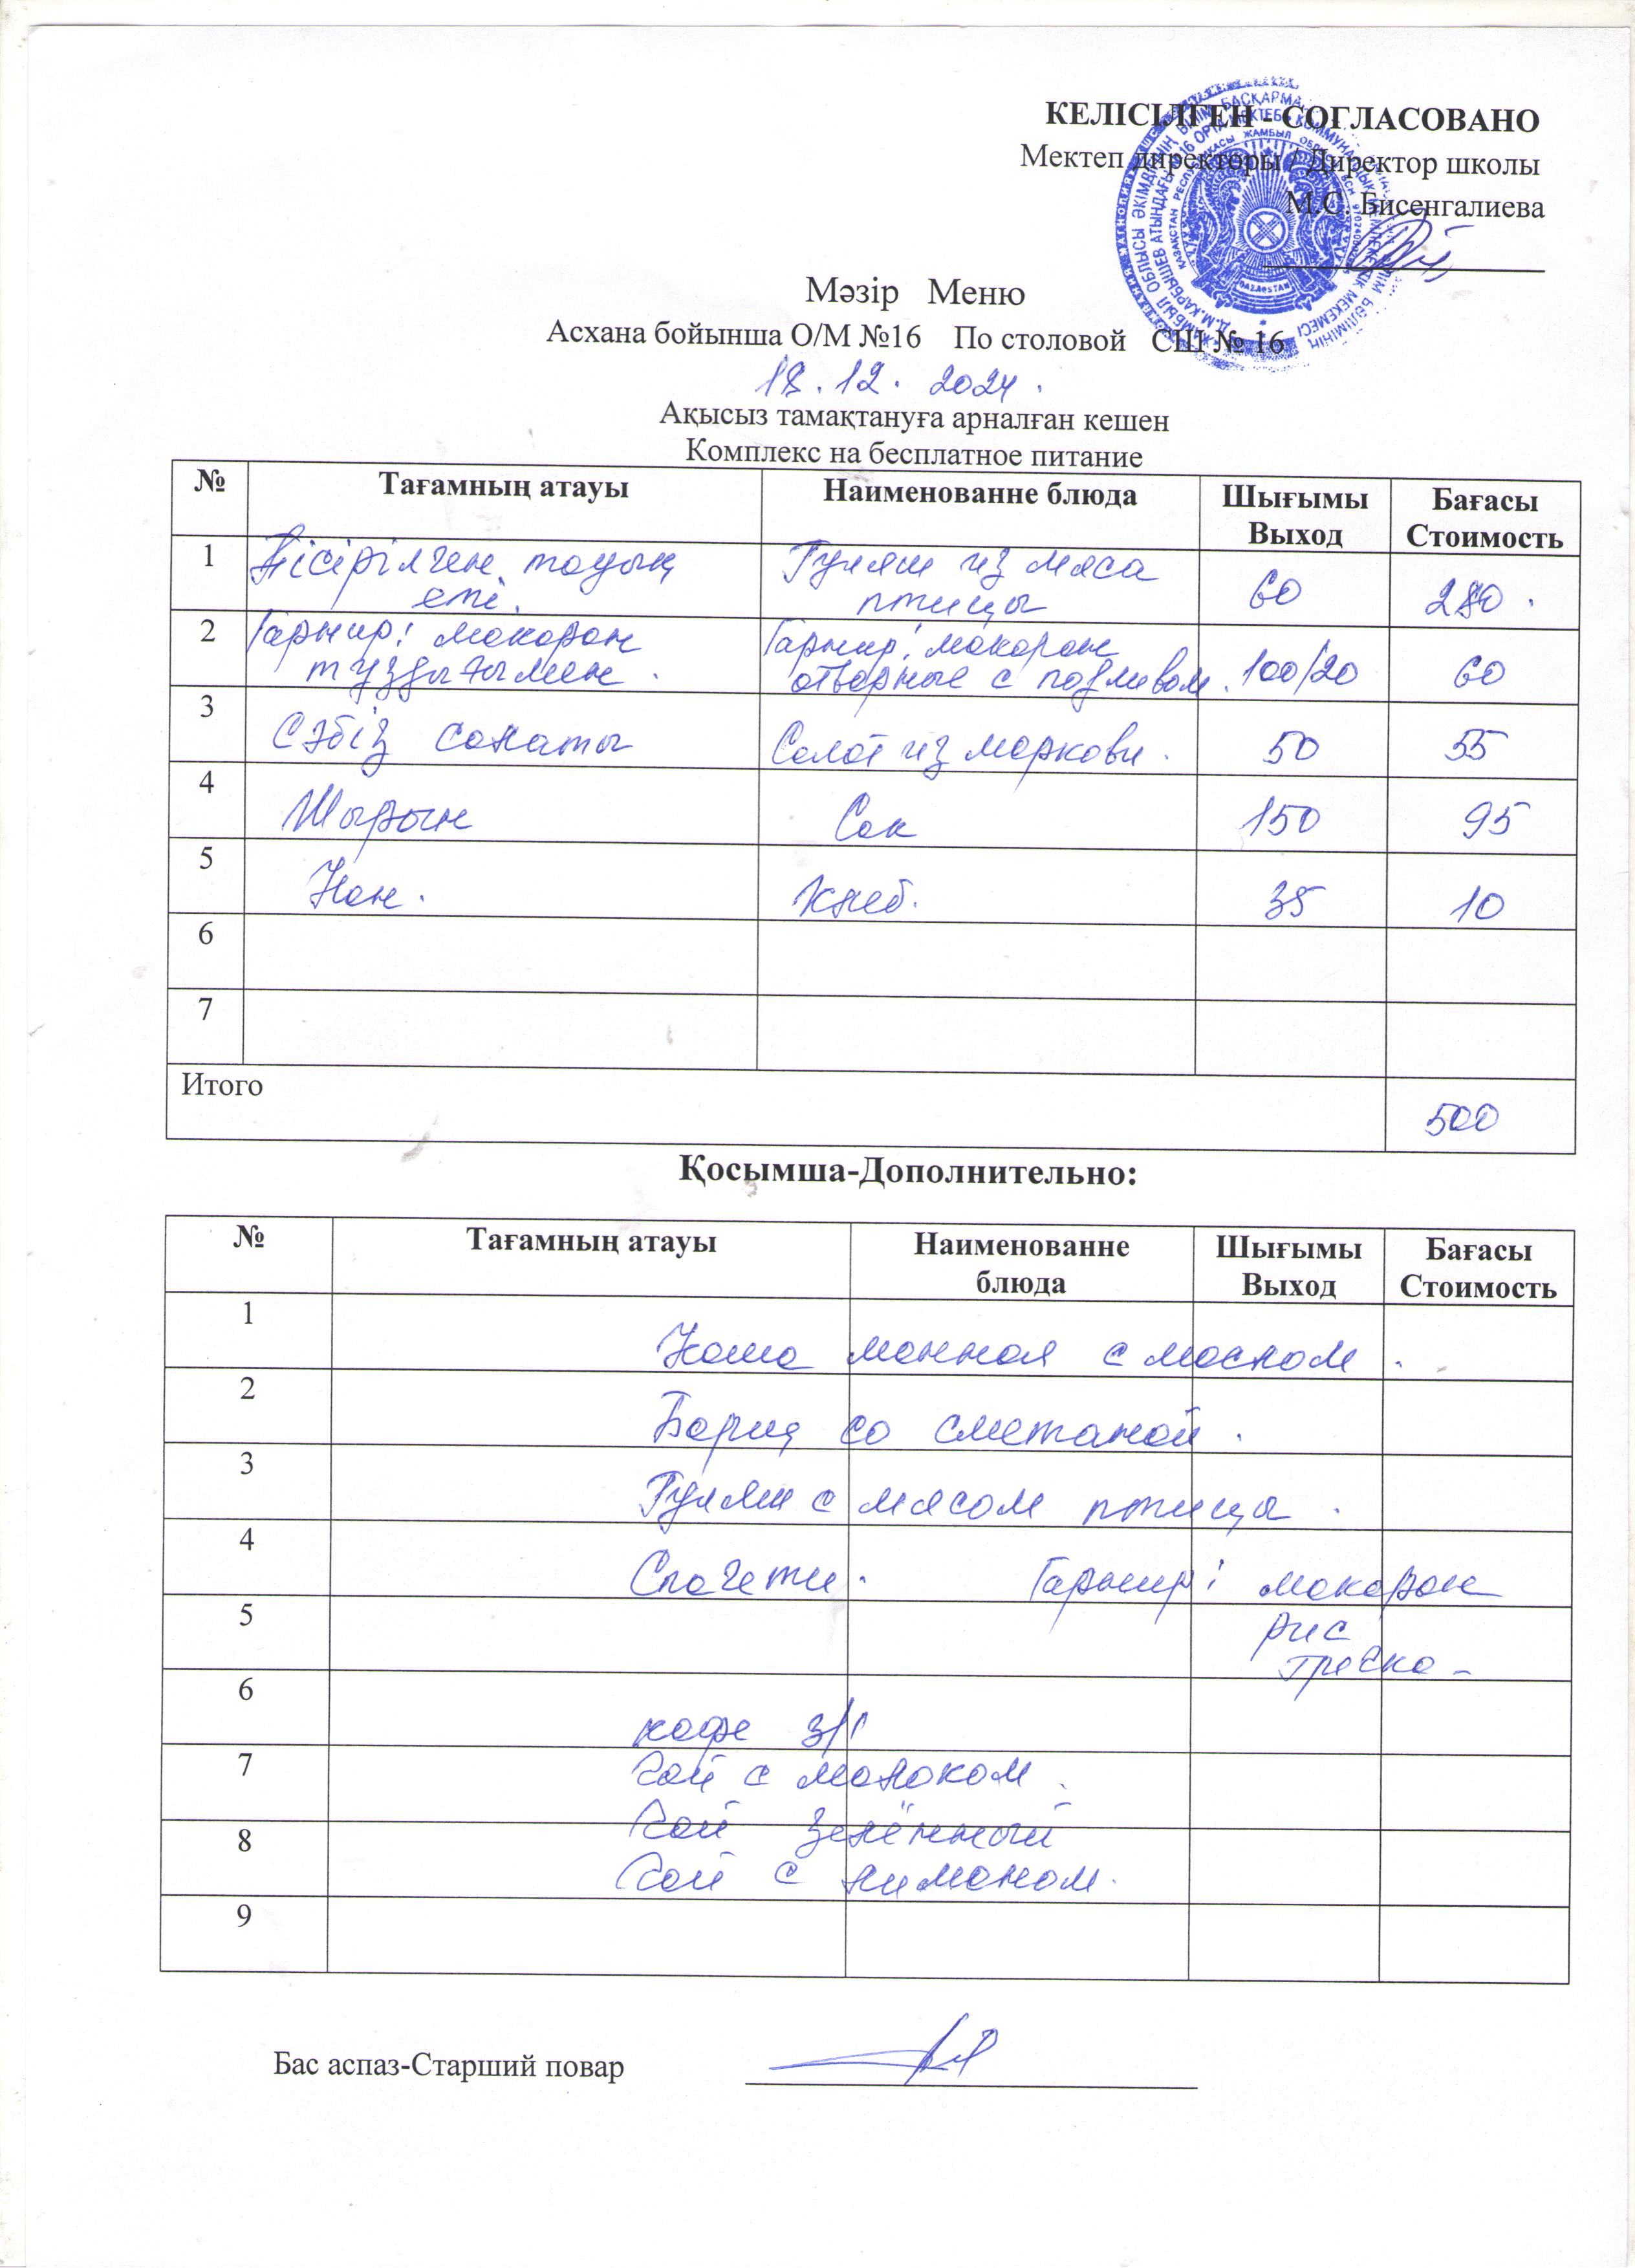 КЕЛІСІЛГЕН - СОГЛАСОВАНО
Мектеп директоры / Директор школы
М.С. Бисенгалиева
Мәзір Меню
Асхана бойынша О/М №16 По столовой СШ № 16
18.12.2024.
Ақысыз тамақтануға арналған кешен
Комплекс на бесплатное питание
№ Тағамның атауы Наименованне блюда Шығымы Выход Бағасы Стоимость
1 Пісірілген тауық еті. Гуляш из мяса птицы 60 280.
2 Гарнир: макарон тұздығымен. Гарнир: макарон отварные с подливом. 100/20 60
3 Сәбіз салаты Салат из моркови. 50 55
4 Шырын Сок 150 95
5 Нан. Хлеб. 35 10
6
7
Итого 500
Қосымша-Дополнительно:
№ Тағамның атауы Наименованне блюда Шығымы Выход Бағасы Стоимость
1 Каша манная с маслом.
2 Борщ со сметаной.
3 Гуляш с мясом птицы.
4 Спагети. Гарнир: макарон
5 рис
греска-
6 кофе 3/1
7 Чай с молоком.
Чай зелённый
8 Чай с лимоном.
9
Бас аспаз-Старший повар